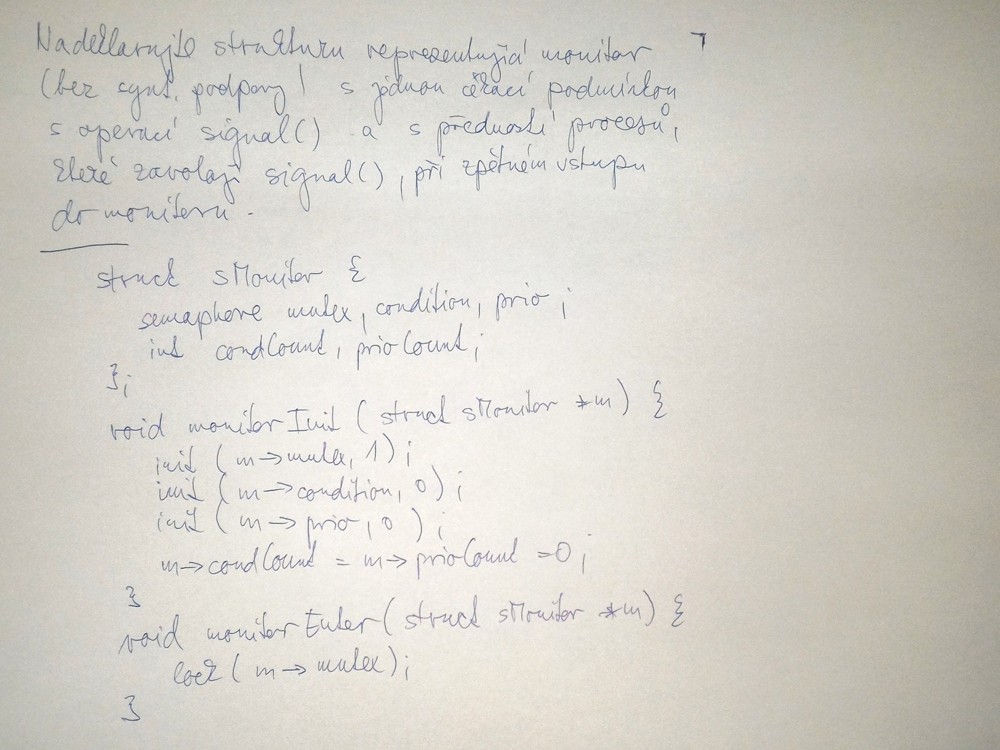 Nadeklarujte strukturu reprezentující monitor 7
(bez synt. podpory) s jednou čekací podmínkou
s operací signal() a s předností procesů,
které zavolají signal(), při zpětném vstupu
do monitoru.
struct sMonitor {
semaphore mutex, condition, prio;
int condCount, prioCount;
};
void monitorInit (struct sMonitor *m) {
init (m->mutex, 1);
init (m->condition, 0);
init (m->prio, 0);
m->condCount = m->prioCount = 0;
}
void monitorEnter(struct sMonitor *m) {
lock (m->mutex);
}